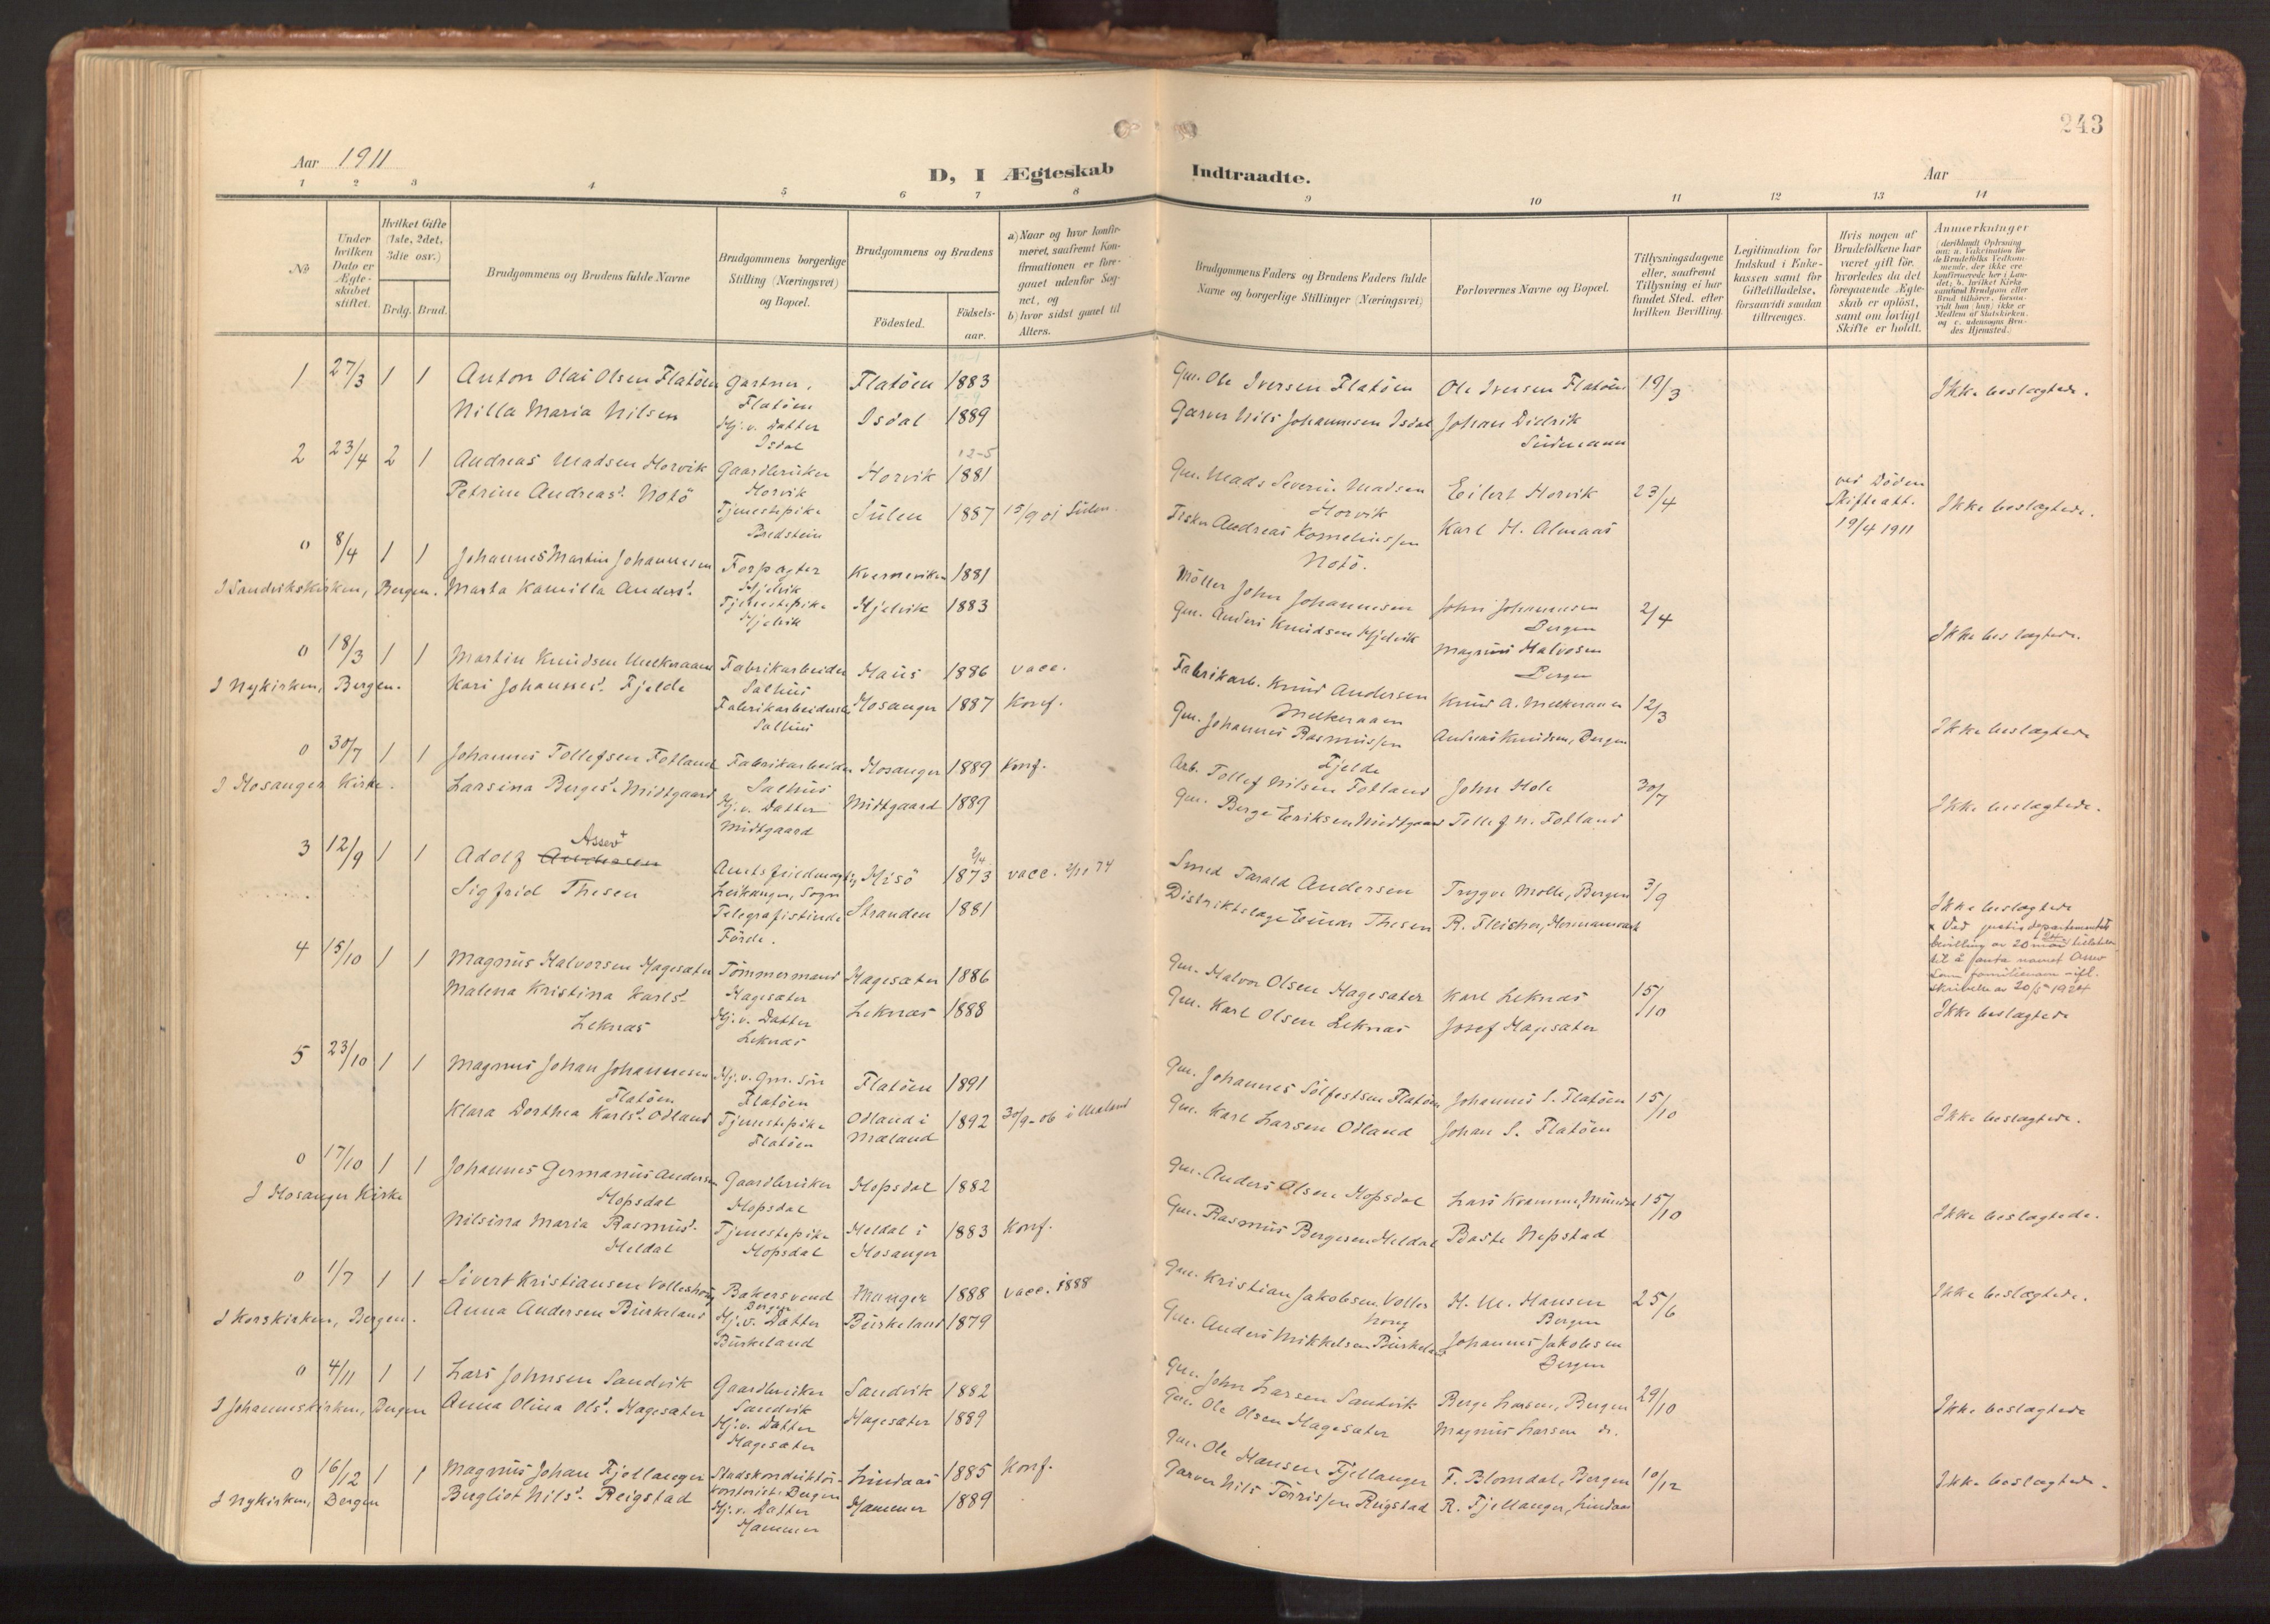 243
Aar 1911
D, I Ægteskab Indtraadte.
Aar
1 2 3 4 5 6 7 8 9 10 11 12 13 14
No
Under hvilken Dato er Ægteskabet stiftet.
Hvilket Gifte (1ste, 2det, 3die osv.)
Brdg. Brud.
Brudgommens og Brudens fulde Navne
Brudgommens borgerlige Stilling (Næringsvei) og Bopæl.
Brudgommens og Brudens
Fødested. Fødsels-aar.
a) Naar og hvor konfirmeret, saafremt Konfirmationen er foregaaet udenfor Sognet, og
b) hvor sidst gaaet til Alters.
Brudgommens Faders og Brudens Faders fulde Navne og borgerlige Stillinger (Næringsvei)
Forlovernes Navne og Bopæl.
Tillysningsdagene eller, saafremt Tillysning ei har fundet Sted, efter hvilken Bevilling.
Legitimation for Indskud i Enkekassen samt for Giftetilladelse, forsaavidt saadan tiltrænges.
Hvis nogen af Brudefolkene har været gift før, hvorledes da det foregaaende Ægteskab er opløst, samt om lovligt Skifte er holdt.
Anmerkninger
1 27/3 1 1 Anton Olai Olsen Flatöen Gartner. Flatöen 1883 Gm. Ole Iversen Flatöen Ole Iversen Flatöen 19/3 Ikke beslægtede.
Flatöen
Nilla Maria Nilsen Hj. v. Datter Isdal 1889 Garver Nils Johannesen Isdal Johan Didrik
Isdal
2 23/4 2 1 Andreas Madsen Horvik Gaardbruker Horvik 12-5 1881 Gm. Mads Severin Madsen Eilert Horvik 23/4 ved Døden Ikke beslægtede.
Horvik Horvik Skifteatt.
Petrine Andreasd. Notö Tjenestepike Sulen 1887 Fisker Andreas Korneliussen Karl H. Almaas 19/4 1911
Bredstein Notö.
0 8/4 1 1 Johannes Martin Johannesen Forpagter Kverneviken 1881 Möller John Johannesen John Johannesen 2/4 Ikke beslægtede.
Hjelvik Bergen
I Sandvikskirken, Bergen. Marta Kamilla Andersd. Tjenestepike Hjelvik 1883 Gm. Anders Knudsen Hjelvik Magnus Halvorsen
Hjelvik Bergen
0 18/3 1 1 Martin Knudsen Melkeraaen Fabrikarbeider Haus 1886 vacc. Fabrikarb. Knud Andersen Knud A. Melkeraaen 12/3 Ikke beslægtede
Salhus Melkeraaen
I Nykirken, Bergen. Kari Johannesd. Fjelde Fabrikarbeiderske Hosanger 1887 Konf. Gm. Johannes Rasmussen Andreas Knudsen, Bergen
Salhus Fjelde
0 30/7 1 1 Johannes Tollefsen Fotland Fabrikarbeider Hosanger 1889 Konf. Arb. Tollef Nilsen Fotland John Hole 30/7 Ikke beslægtede.
Salhus
I Hosanger Kirke. Larsina Bergesd. Midtgaard Hj. v. Datter Midtgaard 1889 Gm. Berge Eriksen Midtgaard Tollef N. Fotland
Midtgaard
3 12/9 1 1 Adolf Assev Amtsfuldmægtig Misö 1873 vacc. Smed Tarald Andersen Trygve Molle, Bergen 3/9 Ikke beslægtede
Leikanger, Sogn
Sigfrid Thesen Telegrafistinde Stranden 1881 Distriktslæge Einar Thesen R. Fleischer, Hermansverk
Förde.
Ved justisdepartementets bevilling av 20 mai tillatelse til å anta navnet Assev som familienavn ifl. skrivelse av 20/5 1924
4 15/10 1 1 Magnus Halvorsen Hagesæter Tömmermand Hagesæter 1886 Gm. Halvor Olsen Hagesæter Karl Leknæs 15/10 Ikke beslægtede
Hagesæter
Malena Kristina Karlsd. Hj. v. Datter Leknæs 1888 Gm. Karl Olsen Leknæs Josef Hagesæter
Leknæs Leknæs
5 23/10 1 1 Magnus Johan Johannesen Hj. v. Gm. Sön Flatöen 1891 Gm. Johannes Sölfestsen Flatöen Johannes S. Flatöen 15/10 Ikke beslægtede.
Flatöen Flatöen
Klara Dorthea Karlsd. Odland Tjenestepike Odland i 1892 30/9-06 i Mæland Gm. Karl Larsen Odland Johan S. Flatöen
Flatöen Mæland
0 17/10 1 1 Johannes Germanus Andersen Gaardbruker Hopsdal 1882 Gm. Anders Olsen Hopsdal Lars Kvamme, 15/10 Ikke beslægtede.
I Hosanger Kirke Hopsdal Hopsdal
Nilsina Maria Rasmusd. Tjenestepike Heldal i 1883 Konf. Gm. Rasmus Bergesen Heldal Baste Nepstad
Heldal Hopsdal Hosanger
0 1/7 1 1 Sivert Kristiansen Volleshong Bakersvend Manger 1888 vacc. 1888 Gm. Kristian Jakobsen Volles H. M. Hansen 25/6 Ikke beslægtede.
Bergen hong Bergen
I Korskirken, Bergen. Anna Andersen Birkeland Hj. v. Datter Birkeland 1879 Gm. Anders Mikkelsen Birkeland Johannes Jakobsen
Birkeland Bergen
0 4/11 1 1 Lars Johnsen Sandvik Gaardbruker Sandvik 1882 Gm. John Larsen Sandvik Berge Larsen, Bergen 29/10 Ikke beslægtede
Sandvik
I Johanneskirken, Bergen Anna Olina Olsd. Hagesæter Hj. v. Datter Hagesæter 1889 Gm. Ole Olsen Hagesæter Magnus Larsen do.
Hagesæter
0 16/12 1 1 Magnus Johan Fjellanger Lindaas 1885 Konf. Gm. Ole Hansen Fjellanger F. Blomdal, Bergen 10/12 Ikke beslægtede.
kontorist, Bergen
I Nykirken, Bergen Bergliot Nilsd. Reigstad Hj. v. Datter Hammer 1889 Garver Nils Torrissen Reigstad R. Fjellanger, Lindaas
Hammer